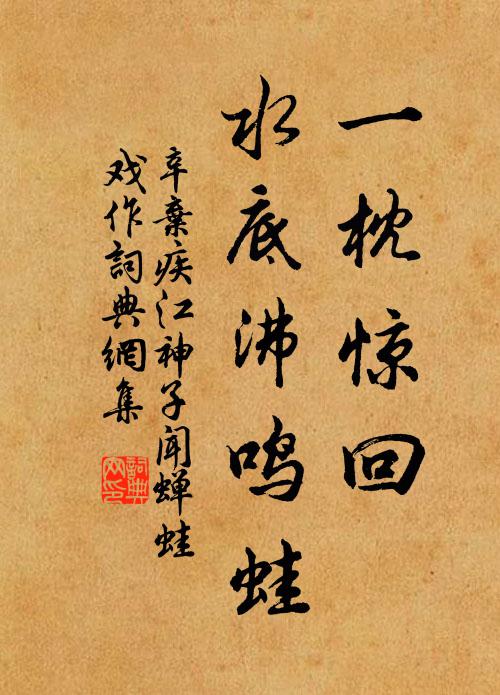 一枕惊回
水底沸鸣蛙
辛棄疾江神子闻蝉蛙
戏作詞典網集
詞典